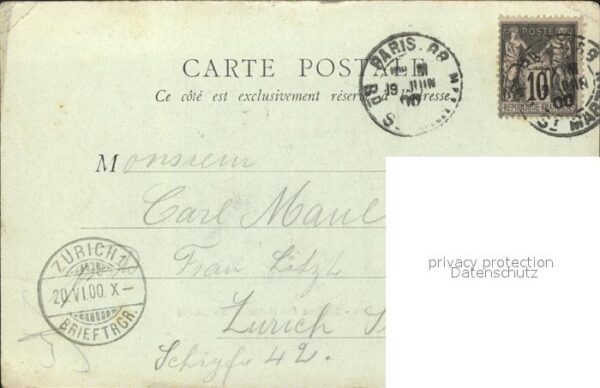 CARTE POSTALE
Ce côté est exclusivement réservé à l'adresse
PARIS. 88
19 JUIN
00
Bd St
POSTE
10
REPUBLIQUE FRANCAISE
00
St MARTIN
Monsieur
Carl Maul
Frau
Zurich
42.
ZURICH 1
20.VI.00.X-
BRIEFTRGR.
privacy protection
Datenschutz